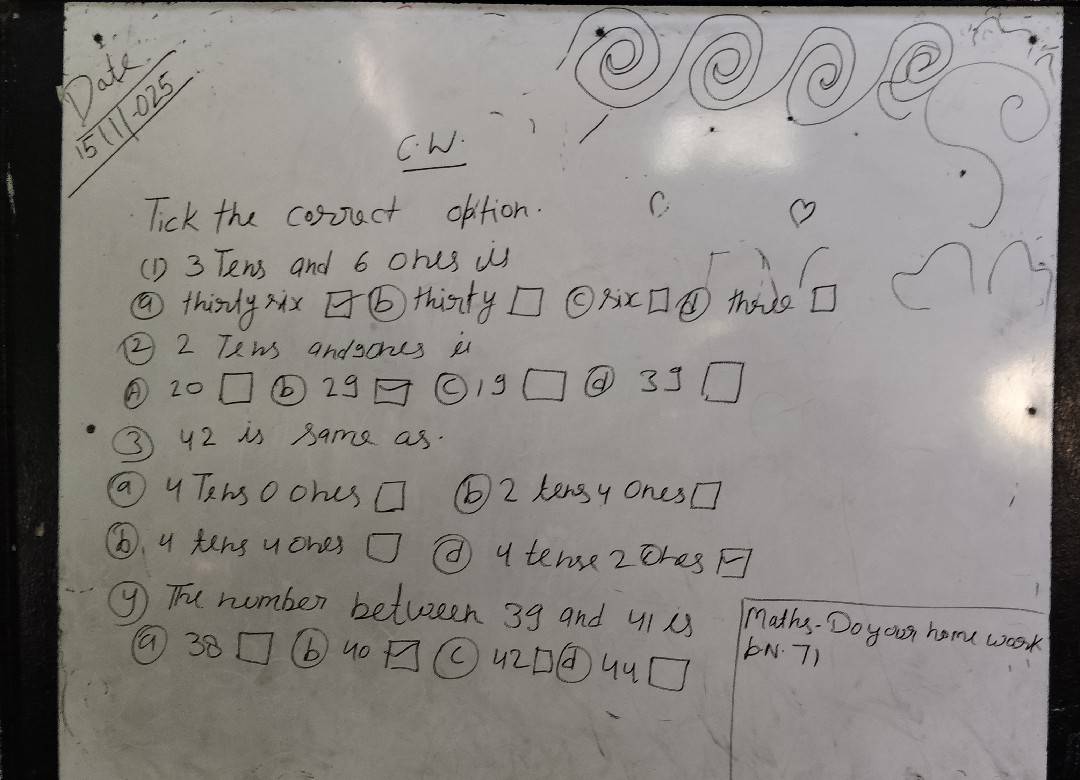 Date
15/11/-025
C.W.
Tick the correct option.
(1) 3 Tens and 6 Ones is
(a) thirty six (b) thirty (c) six (d) three
(2) 2 Tens and 9 ones is
(A) 20 (b) 29 (c) 19 (d) 39
(3) 42 is same as.
(a) 4 Tens 0 ones (b) 2 tens 4 Ones
(b). 4 tens 4 ones (d) 4 tense 2 Ones
(4) The number between 39 and 41 is
(a) 38 (b) 40 (c) 42 (d) 44
Maths - Do your home work
p.N. 71